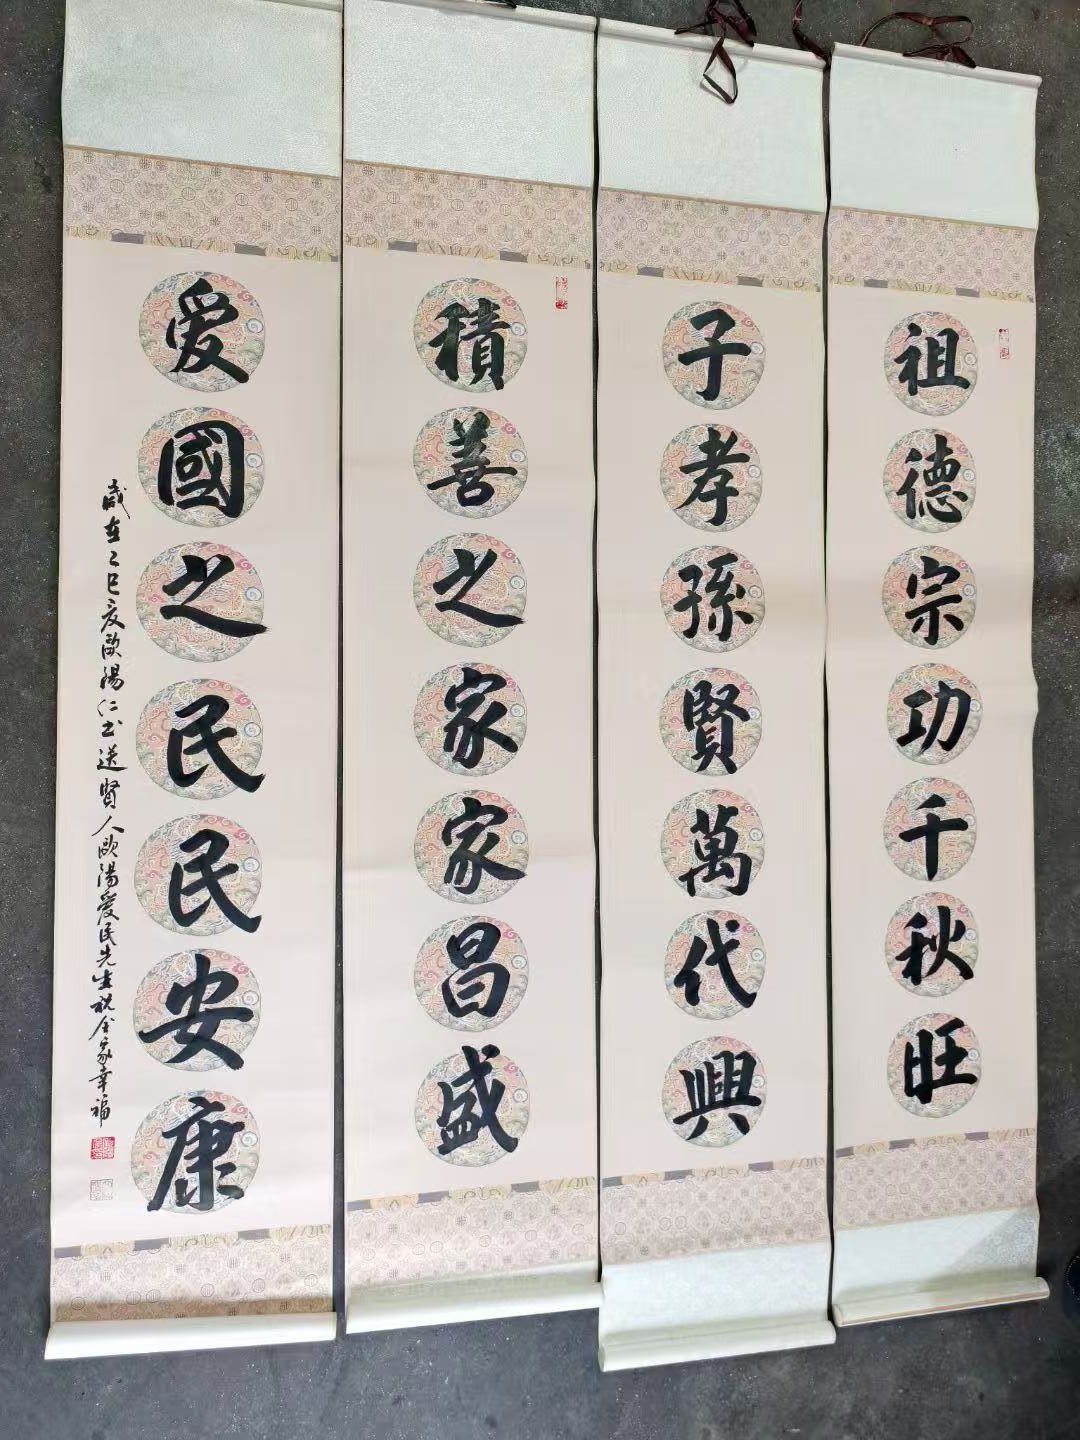 祖德宗功千秋旺
子孝孫賢萬代興
積善之家家昌盛
爱國之民民安康
歲在乙巳夏歐陽仁书送賢人欧陽爱民先生祝全家幸福